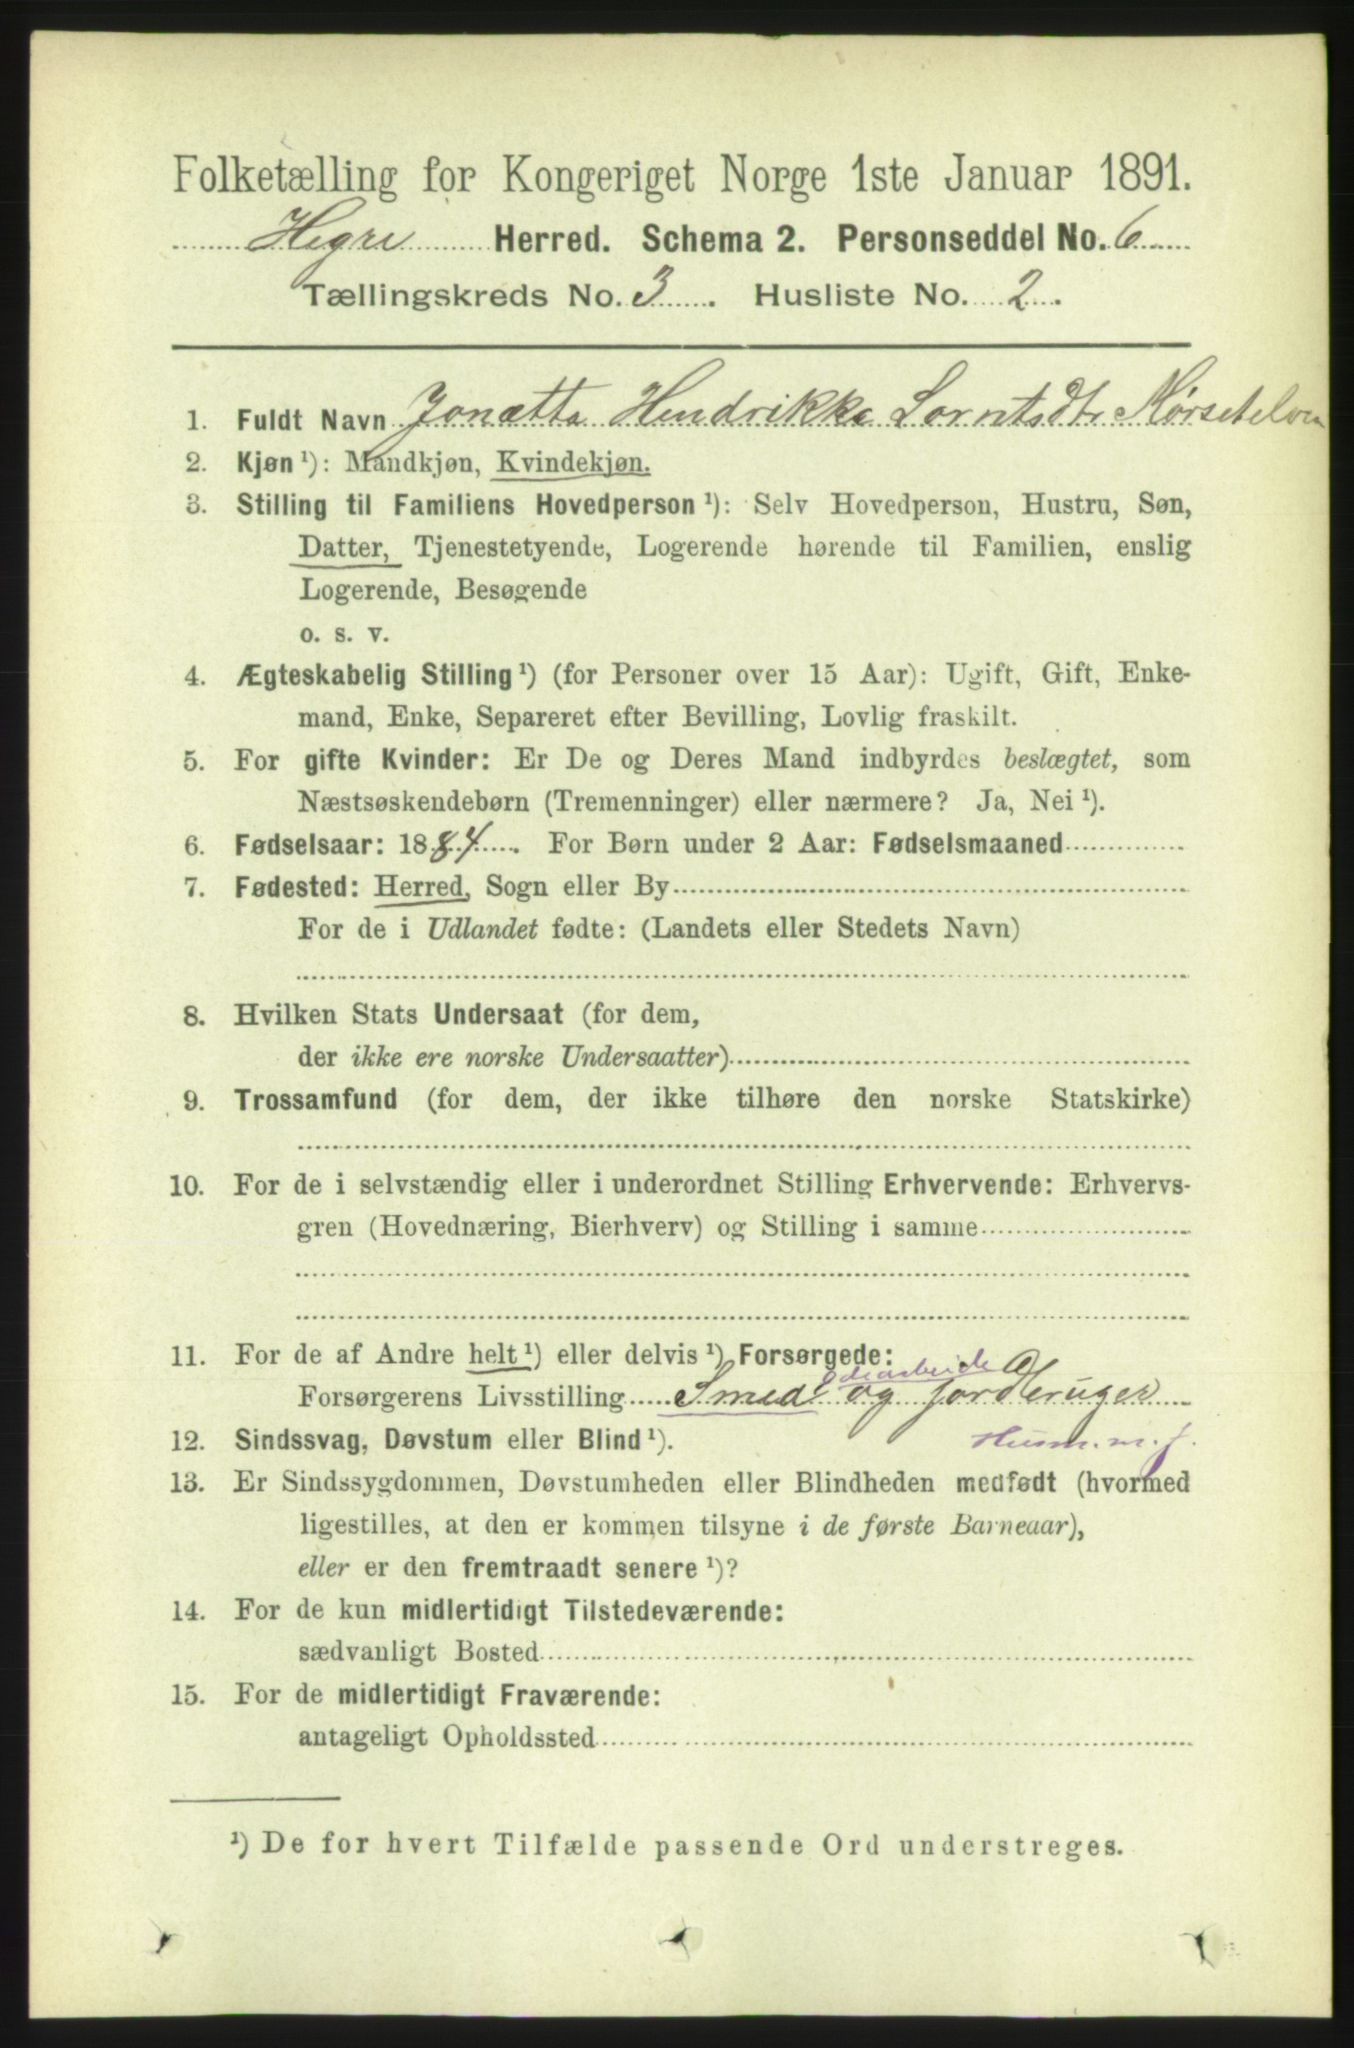 Folketælling for Kongeriget Norge 1ste Januar 1891.
Hegre Herred. Schema 2. Personseddel No. 6
Tællingskreds No. 3. Husliste No. 2.
1. Fuldt Navn Jonætta Hendrikke Lorntsdtr Mørsetelven
2. Kjøn ¹): Mandkjøn, Kvindekjøn.
3. Stilling til Familiens Hovedperson ¹): Selv Hovedperson, Hustru, Søn,
Datter, Tjenestetyende, Logerende hørende til Familien, enslig
Logerende, Besøgende
o. s. v.
4. Ægteskabelig Stilling ¹) (for Personer over 15 Aar): Ugift, Gift, Enke-
mand, Enke, Separeret efter Bevilling, Lovlig fraskilt.
5. For gifte Kvinder: Er De og Deres Mand indbyrdes beslægtet, som
Næstsøskendebørn (Tremenninger) eller nærmere? Ja, Nei ¹).
6. Fødselsaar: 1884. For Børn under 2 Aar: Fødselsmaaned
7. Fødested: Herred, Sogn eller By
For de i Udlandet fødte: (Landets eller Stedets Navn)
8. Hvilken Stats Undersaat (for dem,
der ikke ere norske Undersaatter)
9. Trossamfund (for dem, der ikke tilhøre den norske Statskirke)
10. For de i selvstændig eller i underordnet Stilling Erhvervende: Erhvervs-
gren (Hovednæring, Bierhverv) og Stilling i samme
11. For de af Andre helt ¹) eller delvis ¹) Forsørgede:
Forsørgerens Livsstilling Smed og Jordbruger
12. Sindssvag, Døvstum eller Blind ¹). Husm. m. j.
13. Er Sindssygdommen, Døvstumheden eller Blindheden medfødt (hvormed
ligestilles, at den er kommen tilsyne i de første Barneaar),
eller er den fremtraadt senere ¹)?
14. For de kun midlertidigt Tilstedeværende:
sædvanligt Bosted
15. For de midlertidigt Fraværende:
antageligt Opholdssted
¹) De for hvert Tilfælde passende Ord understreges.